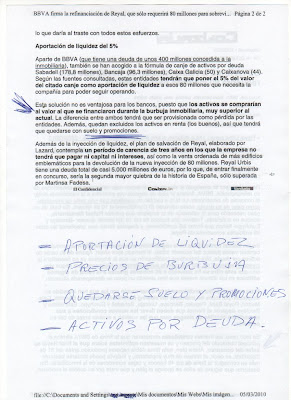 BBVA firma la refinanciación de Reyal, que sólo requerirá 80 millones para sobrevi... Página 2 de 2
lo que daría al traste con todos estos esfuerzos.
Aportación de liquidez del 5%
Aparte de BBVA (que tiene una deuda de unos 400 millones concedida a la
inmobiliaria), también se han acogido a la fórmula de canje de activos por deuda
Sabadell (178,8 millones), Bancaja (96,3 millones), Caixa Galicia (50) y Caixanova (44).
Según las fuentes consultadas, estas entidades tendrán que poner el 5% del valor
del citado canje como aportación de liquidez a esos 80 millones que necesita la
compañía para poder seguir operando.
Esta solución no es ventajosa para los bancos, puesto que los activos se comprarían
al valor al que se financiaron durante la burbuja inmobiliaria, muy superior al
actual. La diferencia entre ambos tendrá que ser provisionada como pérdida por las
entidades. Además, quedan excluidos los activos en renta (los buenos), así que tendrá
que quedarse con suelo y promociones.
Además de la inyección de liquidez, el plan de salvación de Reyal, elaborado por
Lazard, contempla un periodo de carencia de tres años en los que la empresa no
tendrá que pagar ni capital ni intereses, así como la venta ordenada de más edificios
emblemáticos para la devolución de la nueva inyección de 80 millones. Reyal Urbis
tiene una deuda total de casi 5.000 millones de euros, por lo que, de entrar finalmente
en concurso, sería la segunda mayor quiebra de la historia de España, sólo superada
por Martinsa Fadesa.
El Confidencial
- APORTACIÓN DE LIQUIDEZ
- PRECIOS DE BURBUJA
- QUEDARSE SUELO Y PROMOCIONES
- ACTIVOS POR DEUDA.
file://C:\Documents and Settings\ \Mis documentos\Mis Webs\Mis imágen... 05/03/2010